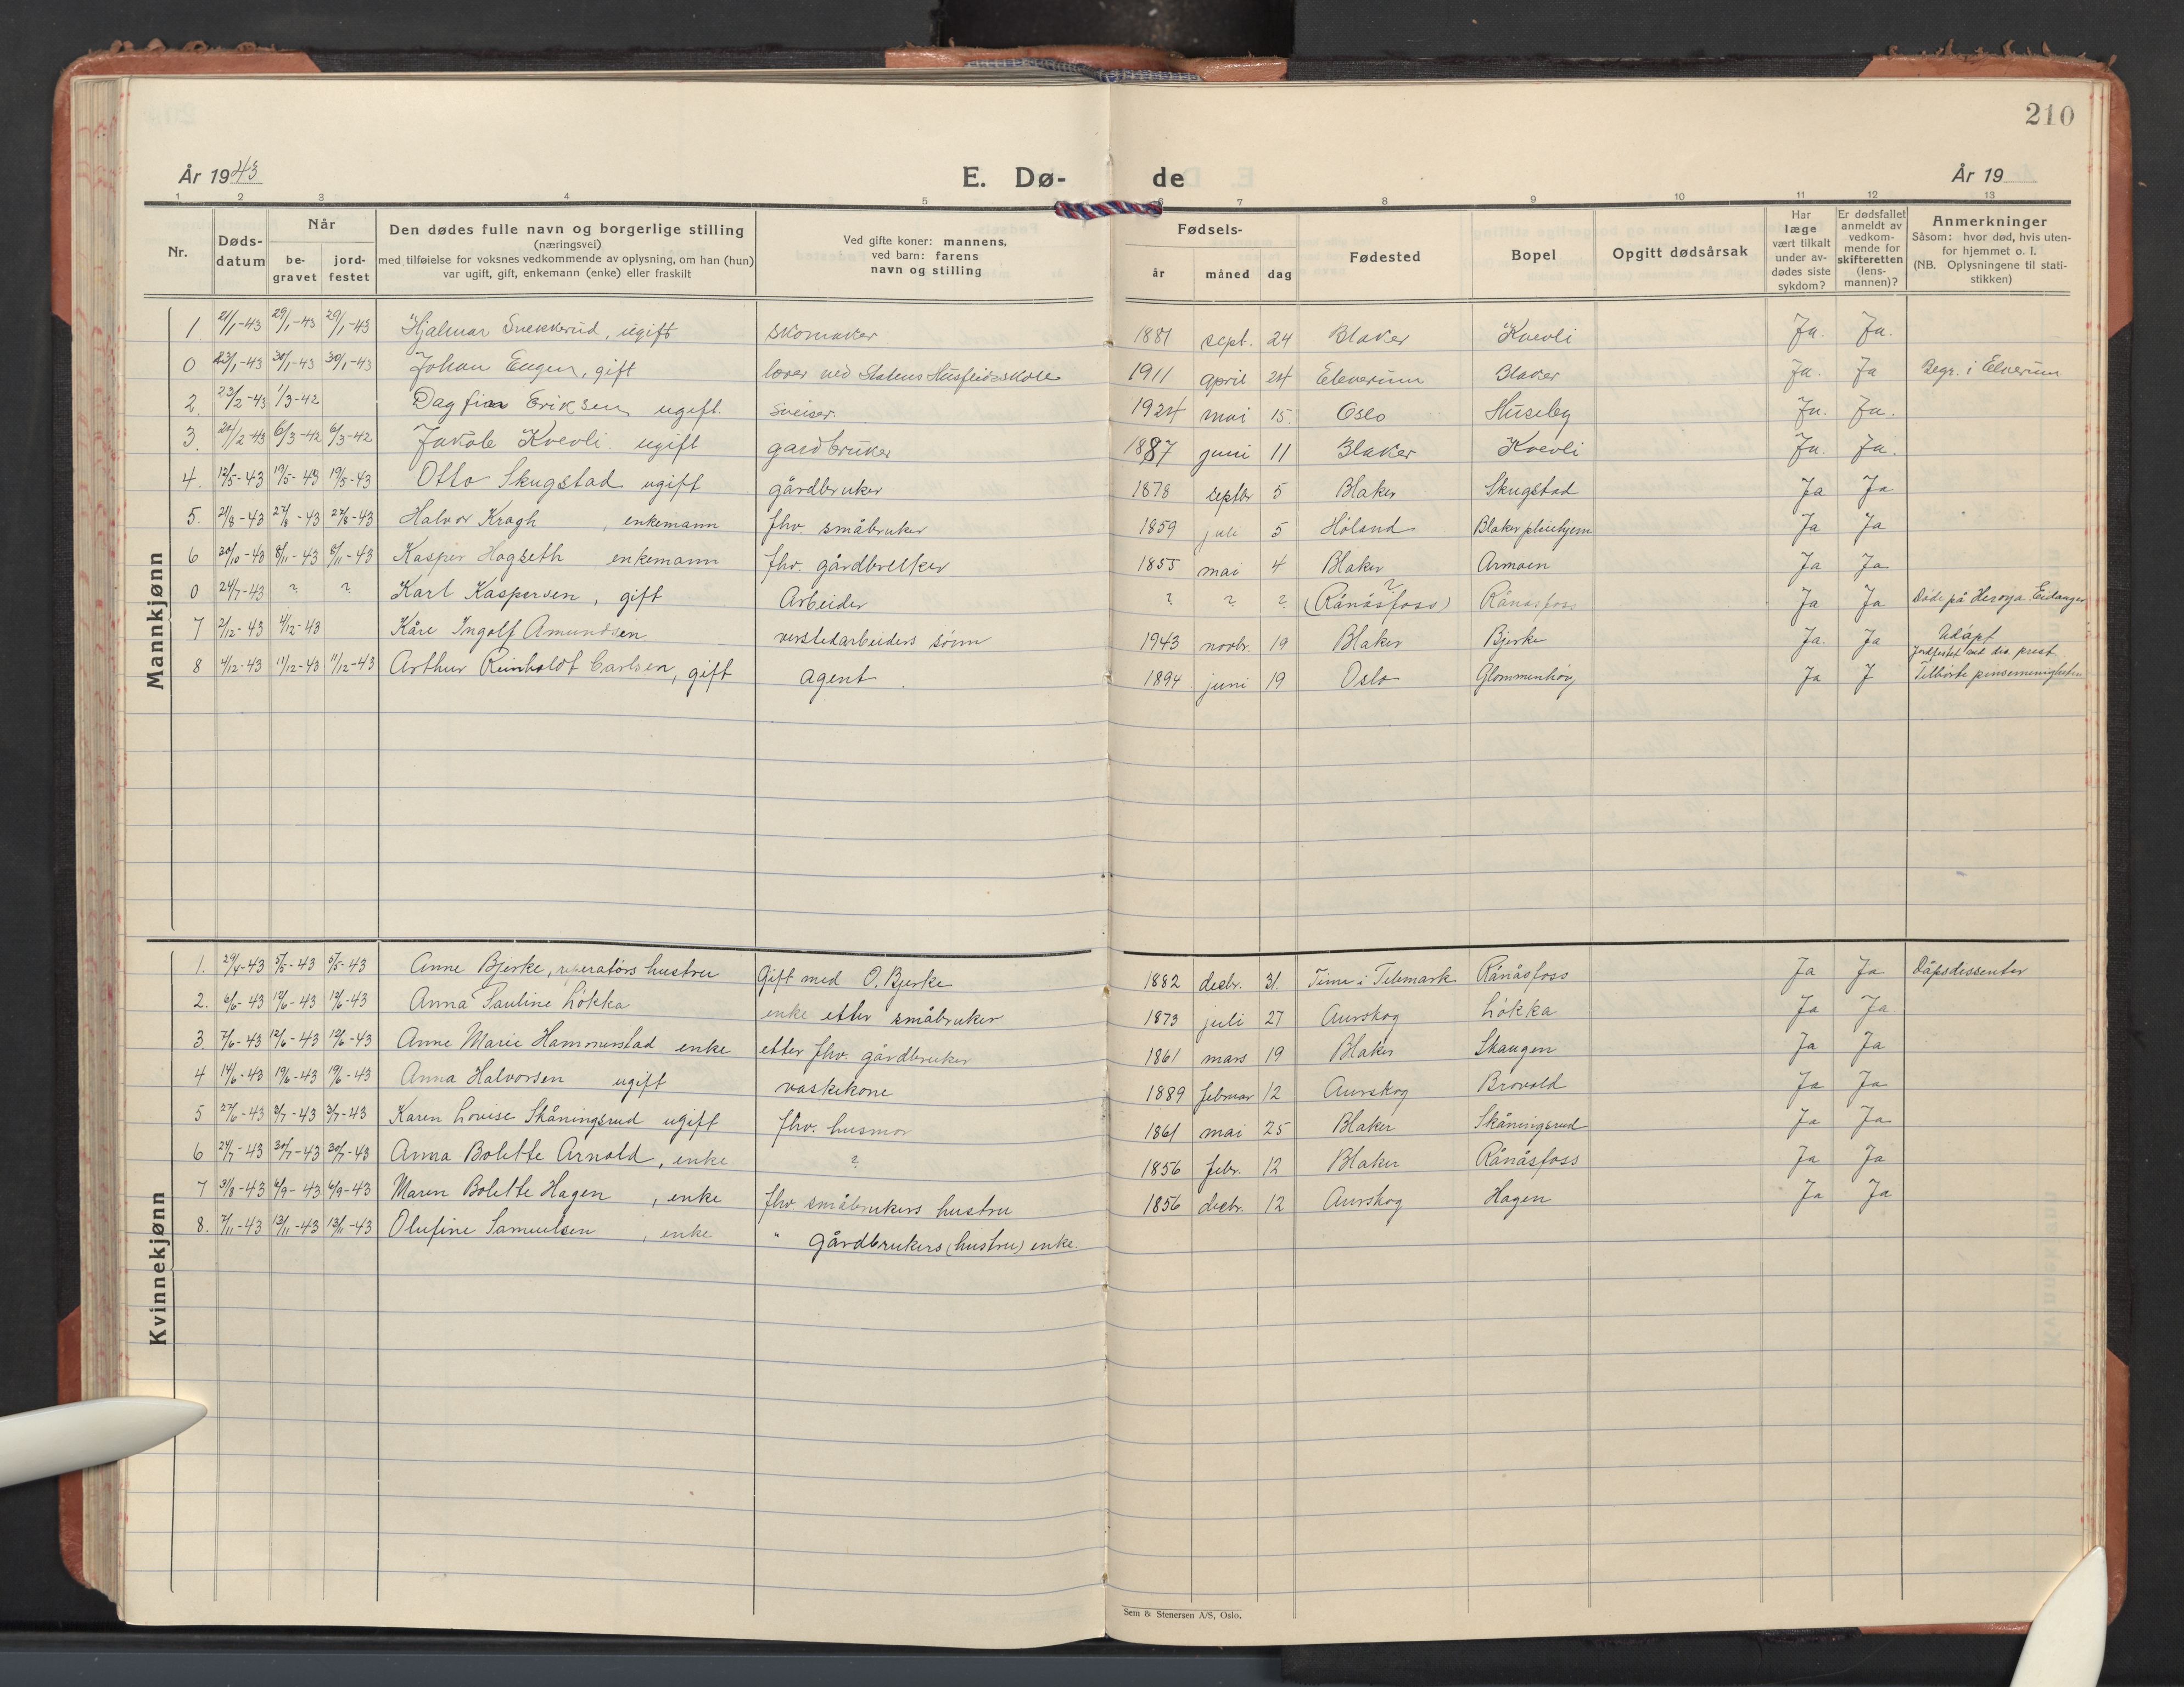 210
År 1943
E. Dø- de
År 19
1 2 3 4 5 6 7 8 9 10 11 12 13
Nr.
Døds-
datum
Når
be-
gravet
jord-
festet
Den dødes fulle navn og borgerlige stilling
(næringsvei)
med tilføielse for voksnes vedkommende av oplysning, om han (hun)
var ugift, gift, enkemann (enke) eller fraskilt
Ved gifte koner: mannens,
ved barn: farens
navn og stilling
Fødsels-
år måned dag
Fødested
Bopel
Opgitt dødsårsak
Har
læge
vært tilkalt
under av-
dødes siste
sykdom?
Er dødsfallet
anmeldt av
vedkom-
mende for
skifteretten
(lens-
mannen)?
Anmerkninger
Såsom: hvor død, hvis uten-
for hjemmet o. l.
(NB. Oplysningene til stati-
stikken)
Mannkjønn
1 21/1-43 29/1-43 29/1-43 Hjalmar Svekkerud, ugift skomaker 1881 sept. 24 Blaker Kvevli Ja. Ja.
0 23/1-43 30/1-43 30/1-43 Johan Engen, gift lærer ved Statens Husflidsskole 1911 april 24 Eleverum Blaker Ja. Ja Begr. i Elverum
2. 23/2-43 1/3-42 Dagfinn Eriksen ugift. Sveiser. 1924 mai 15. Oslo Huseby Ja. Ja.
3. 24/2-43 6/3-42 6/3-42 Jakob Kvevli ugift gardbruker 1887 juni 11 Blaker Kvevli Ja. Ja.
4. 12/5-43 19/5-43 19/5-43 Otto Skugstad ugift gårdbruker 1878 septbr 5 Blaker Skugstad Ja Ja
5. 21/8-43 27/8-43 27/8-43 Halvor Kragh, enkemann fhv. småbruker 1859 juli 5 Høland Blaker pleiehjem Ja Ja
6 30/10-43 8/11-43 8/11-43 Kasper Hogseth enkemann fhv. gårdbruker 1855 mai 4 Blaker Armoen Ja Ja
0 24/7-43 ? ? Karl Kaspersen, gift Arbeider ? ? ? ? (Rånåsfoss) Rånåsfoss Ja Ja Døde på Herøya Eidanger
7 2/12-43 4/12-43 Kåre Ingolf Amundsen verkstedarbeiders sønn 1943 novbr. 19 Blaker Bjerke Ja. Ja Udøpt
8 4/12-43 11/12-43 11/12-43 Arthur Reinholdt Carlsen, gift agent 1894 juni 19 Oslo Glommenhöy Ja J Jordfestet ved dis. prest
Tilhørte pinsemenigheten
Kvinnekjønn
1. 29/4-43 5/5-43 5/5-43 Anne Bjerke, hustru Gift med O. Bjerke 1882 decbr. 31. Tinn i Telemark Rånåsfoss Ja Ja Dåpsdissenter
2. 6/6-43 12/6-43 12/6-43 Anna Pauline Løkka enke etter småbruker 1873 juli 27 Aurskog Løkka Ja Ja
3. 7/6-43 12/6-43 12/6-43 Anne Marie Hammerstad enke etter fhv. gårdbruker 1861 mars 19 Blaker Skaugen Ja Ja
4 14/6-43 19/6-43 19/6-43 Anna Halvorsen ugift vaskekone 1889 februar 12 Aurskog Brovold Ja Ja
5 27/6-43 3/7-43 3/7-43 Karen Lovise Skåningsrud ugift fhv. husmor 1861 mai 25 Blaker Skåningsrud Ja Ja
6 24/7-43 30/7-43 30/7-43 Anna Bolette Arnold, enke ? 1856 febr. 12 Blaker Rånåsfoss Ja Ja
7 31/8-43 6/9-43 6/9-43 Maren Bolette Hagen, enke fhv. småbrukers hustru 1856 decbr. 12 Aurskog Hagen Ja Ja
8. 7/11-43 13/11-43 13/11-43 Olufine Samuelsen, enke " gårdbrukers (hustru) enke.
Sem & Stenersen A/S, Oslo.